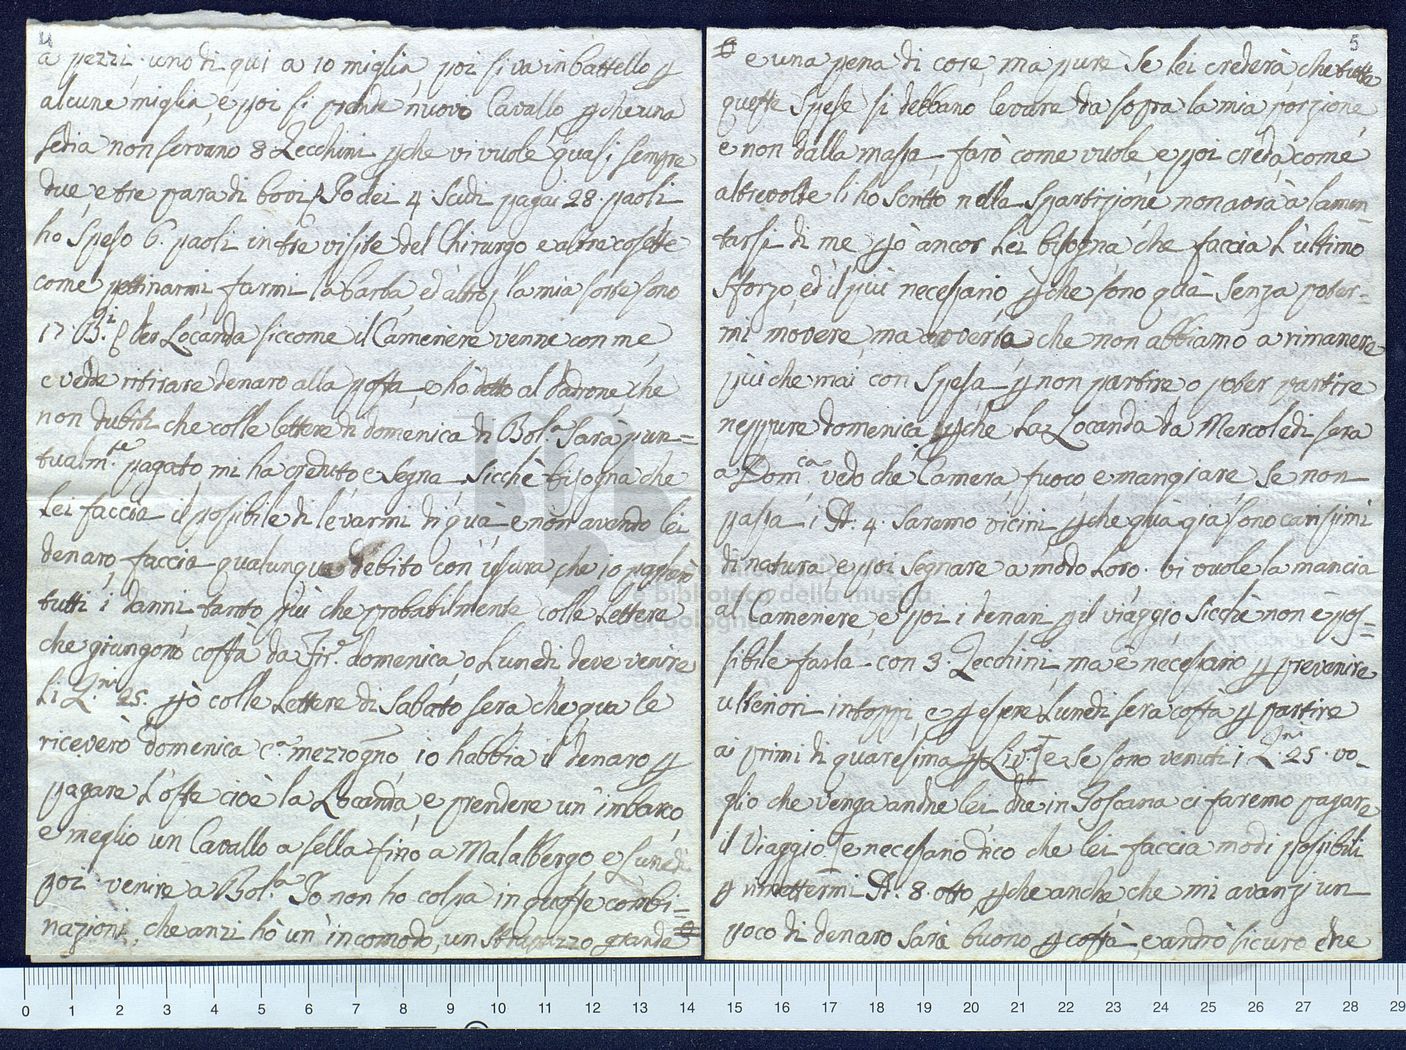 4
a pezzi, uno di qui a 10 miglia, poi si va in battello p
alcune miglia, e poi si prende nuovo Cavallo pche una
sedia non servano 8 Zecchini pche vi vuole quasi sempre
due, e tre para di bovi. Io dei 4 Scudi pagai 28. paoli
ho speso 6. paoli in tre visite del Chirurgo e altre cosette
come pettinarmi, farmi la barba, ed altro, la mia sorte sono
17 B.i Per Locanda siccome il Cameriere venne con me,
e vedde ritirare denaro alla posta, e ho detto al Padrone, che
non dubiti che colle lettere di domenica di Bol.a Sarà pun=
tualm.te pagato, mi ha creduto e segna, Sicchè bisogna che
Lei faccia il possibile di levarmi di quà, e non avendo lei
denaro faccia qualunque debito con usura che io pagherò
tutti i danni, tanto più che probabilmente colle Lettere
che giungono costà da Fir.e domenica, o Lunedì, deve venire
Li Z.ni 25. pò colle Lettere di Sabato sera, che qua le
riceverò domenica c.a mezzogno, io habbia il denaro p
pagare L'oste cioè la Locanda, e prendere un' imbarco,
e meglio un Cavallo a sella fino a Malalbergo e Lunedì
poi venire a Bol.a Io non ho colpa in queste combi=
nazioni, che anzi hò un' incomodo, un strapazzo grande
5
e una pena di core, ma pure Se lei crederà che tutte
queste Spese si debbano levare da sopra la mia porzione,
e non dalla massa, farò come vuole, e poi creda, come
altrevolte li ho Scritto nella Spartizione non avrà a lamen
tarsi di me pò ancor Lei bisogna che faccia L'ultimo
Sforzo, ed il piu necessario pche sono quà Senza poter=
mi movere, ma avverta, che non abbiamo a rimanere
più che mai con Spesa p non partire, o poter partire
neppure domenica pche La Locanda da Mercoledi sera
a Dom.ca vedo che Camera, fuoco e mangiare, se non
passa i 4. saremo vicini pche quà già sono carissimi
di natura, e poi segnare a modo Loro. vi vuole la mancia
al Cameriere, e poi i denari pil viaggio Sicchè non è pos=
sibile farla con 3. Zecchini, ma è necessario p prevenire
ulteriori intoppi, e p essere Lunedì sera costà p partire
ai primi di quaresima p Liv.o e se sono venuti i Z.ni 25. vo=
glio che venga anche lei che in Toscana ci faremo pagare
il Viaggio. è necessario dico che lei faccia modi possibili
p rimettermi 8. otto pche anche, che mi avanzi un
poco di denaro sarà buono p costà, e andrò sicuro che